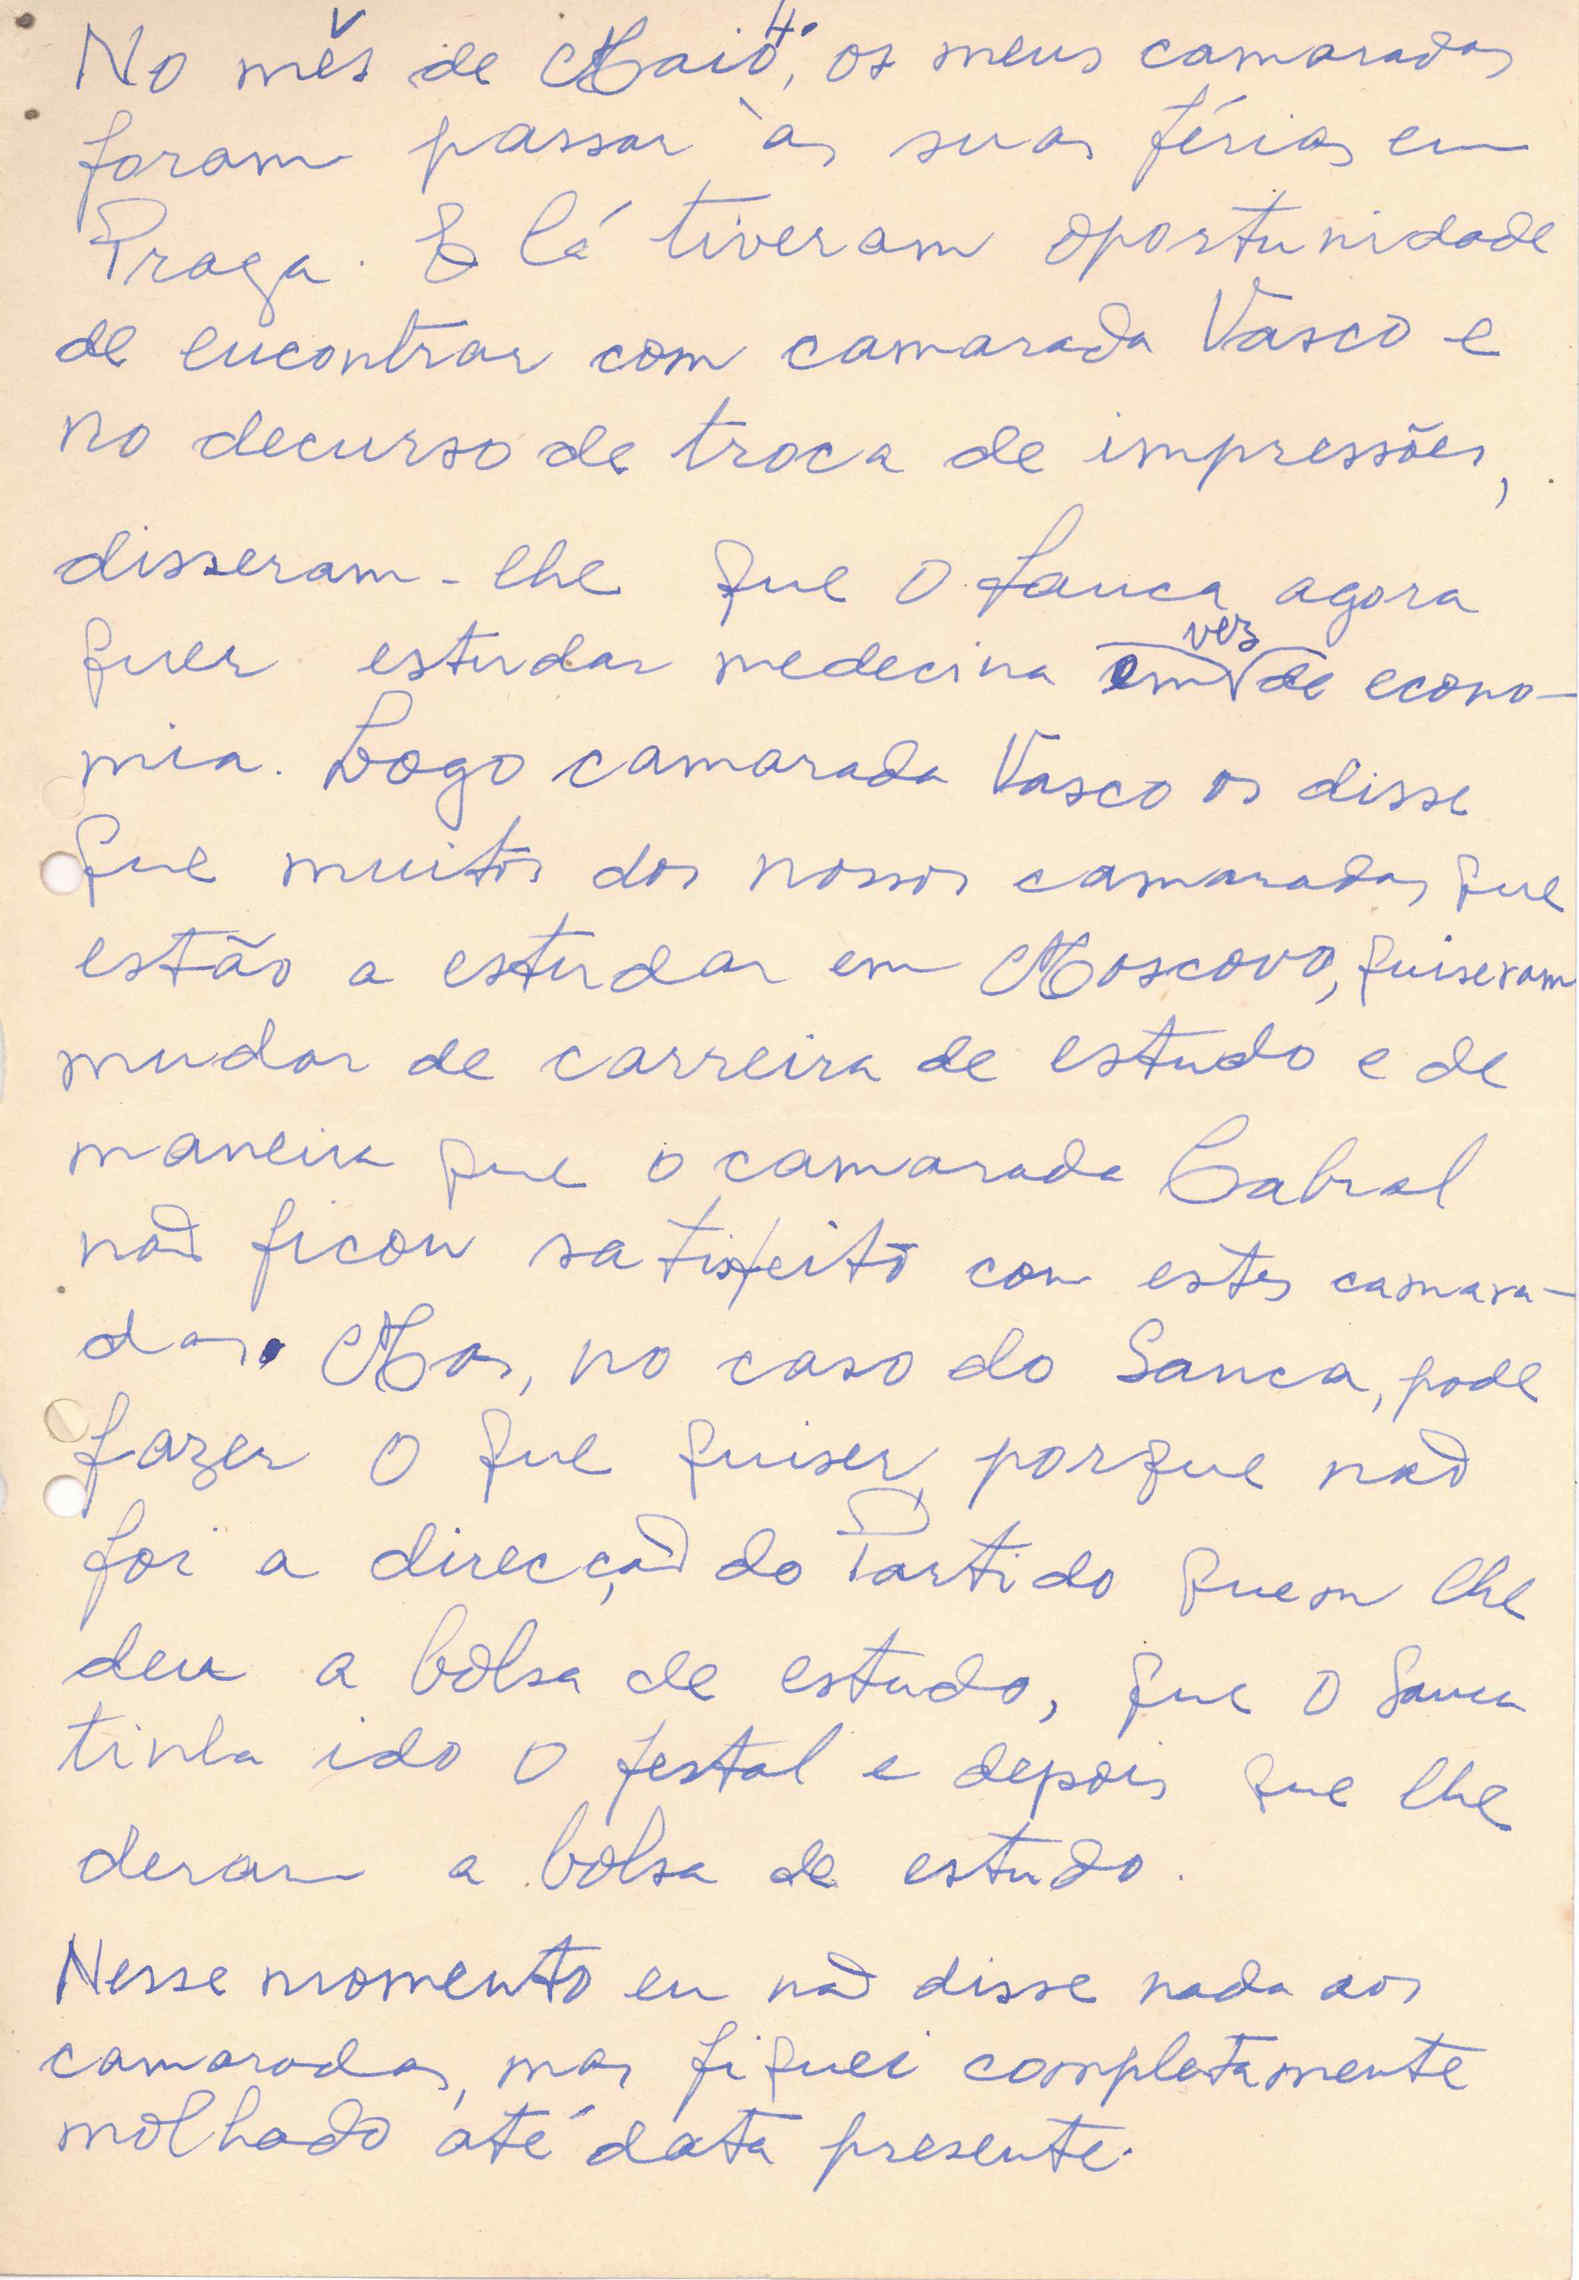 No mês de Maio, os meus camaradas
foram passar às suas férias em
Praga. E lá tiveram oportunidade
de encontrar com camarada Vasco e
no decurso de troca de impressões,
disseram-lhe que o Sanca agora
quer estudar medecina em vez de econo-
mia. Logo camarada Vasco os disse
que muitos dos nossos camaradas que
estão a estudar em Moscovo, quiseram
mudar de carreira de estudo e de
maneira que o camarada Cabral
não ficou satisfeito com estes camara-
das. Mas, no caso do Sanca, pode
fazer o que quiser, porque não
foi a direcção do Partido quem lhe
deu a bolsa de estudo, que o Sanca
tinha ido o festal e depois que lhe
deram a bolsa de estudo.
Nesse momento eu não disse nada aos
camaradas, mas fiquei completamente
molhado até data presente.